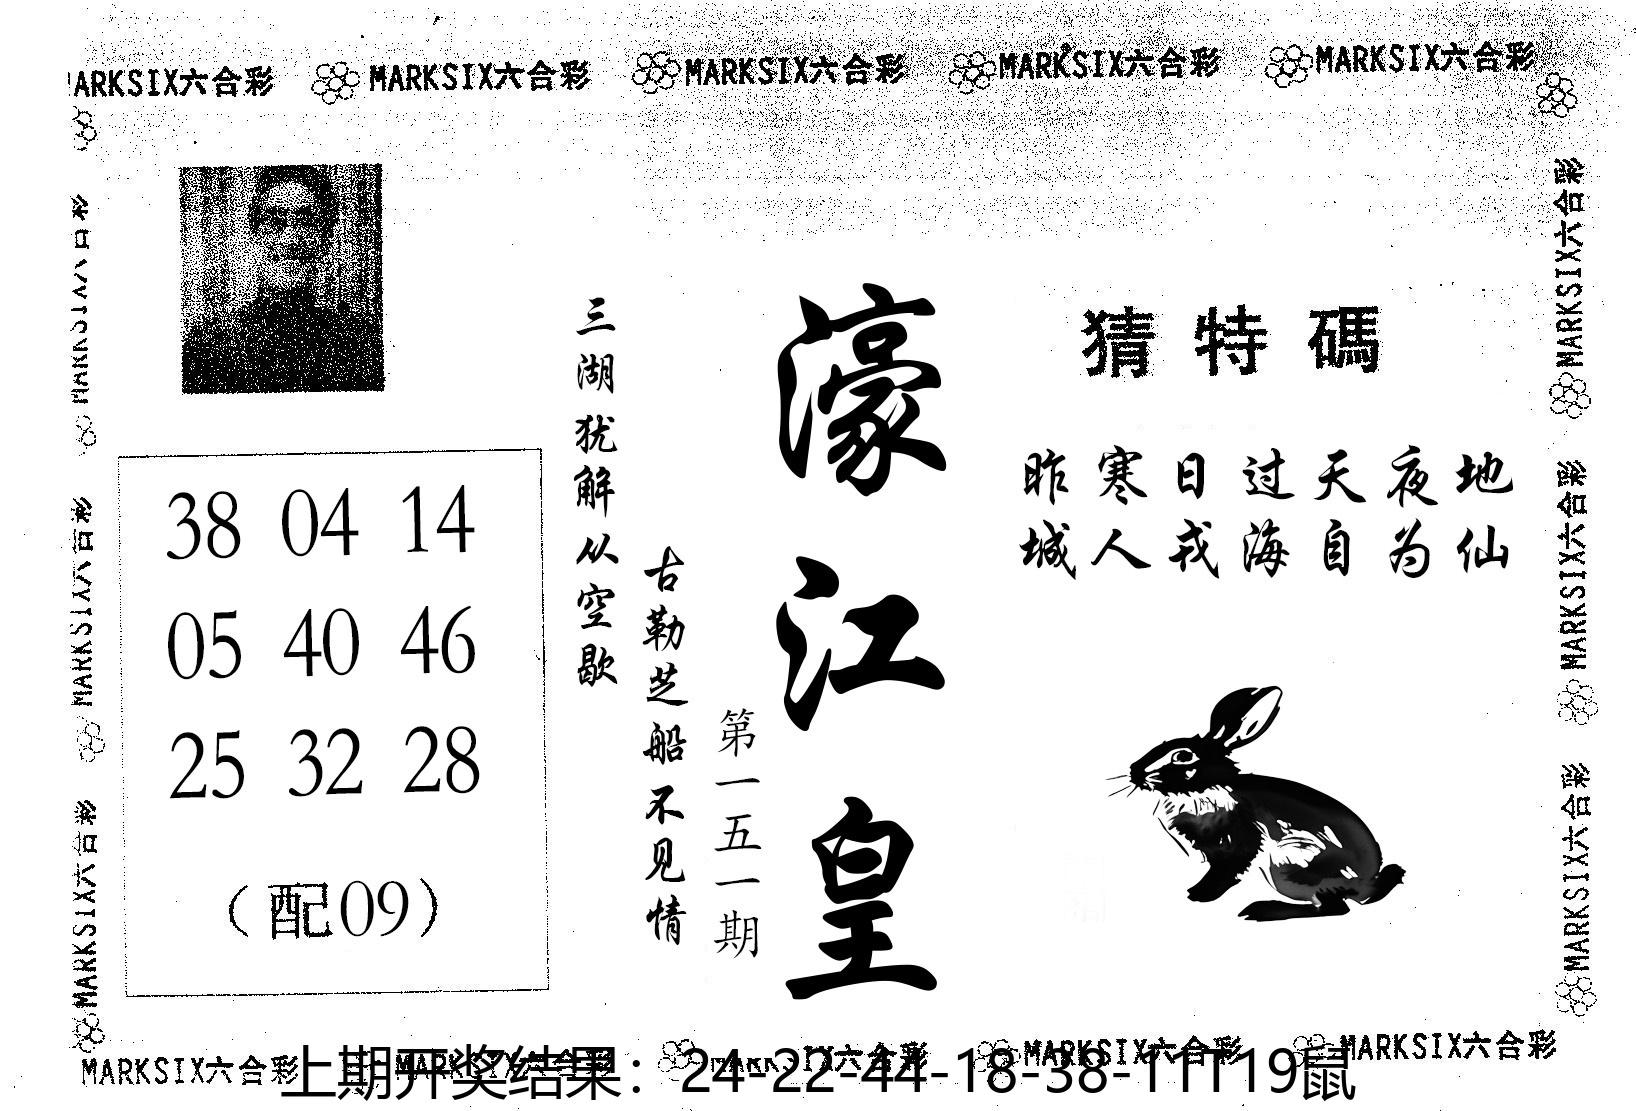 MARKSIX六合彩 MARKSIX六合彩 MARKSIX六合彩 MARKSIX六合彩 MARKSIX六合彩
猜特碼
昨寒日过天夜地
城人戎海自为仙
濠江皇
第一五一期
古勒芝船不见情
三湖犹解从空歇
38 04 14
05 40 46
25 32 28
（配09）
MARKSIX六合彩
MARKSIX六合彩
MARKSIX六合彩
MARKSIX六合彩
MARKSIX六合彩
MARKSIX六合彩
MARKSIX六合彩 MARKSIX六合彩 MARKSIX六合彩 MARKSIX六合彩 MARKSIX六合彩
上期开奖结果：24-22-44-18-38-11T19鼠